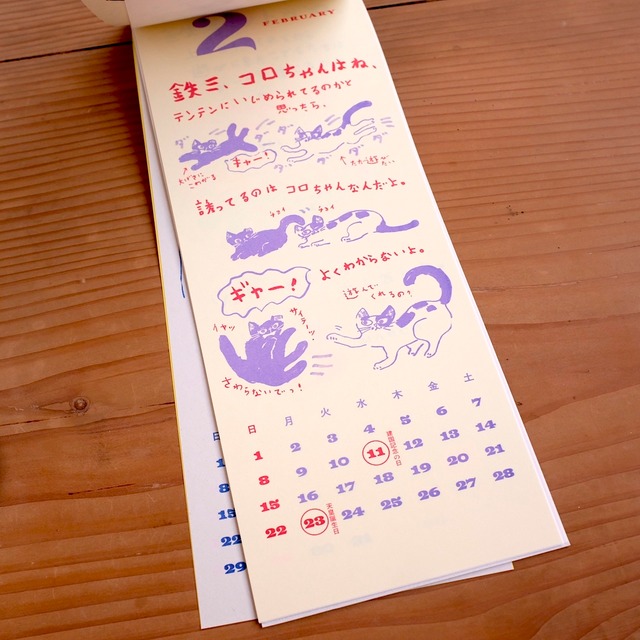 2 FEBRUARY
鉄三、コロちゃんはね、
テンテンにいじめられてるのかと
思ったら、
ダ ダ ダ ダ
ギャー!
ダ ダ ダ
おおげさに
こわがる
誘ってるのは コロちゃんなんだよ。
チョイ チョイ
よくわからないよ。
ギャー!
遊んで
くれるの?
イヤッ
サイテーッ!
さわらないでっ!
日 月 火 水 木 金 土
1 2 3 4 5 6 7
8 9 10 11 12 13 14
建国記念の日
15 16 17 18 19 20 21
22 23 24 25 26 27 28
天皇誕生日
日
1
8
15
22
29